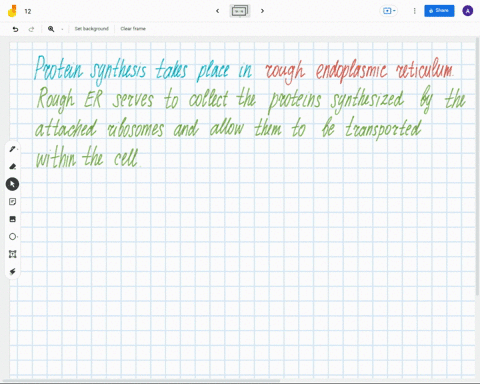 12
Share
A
Set background
Clear frame
Protein synthesis takes place in rough endoplasmic reticulum.
Rough ER serves to collect the proteins synthesized by the
attached ribosomes and allow them to be transported
within the cell